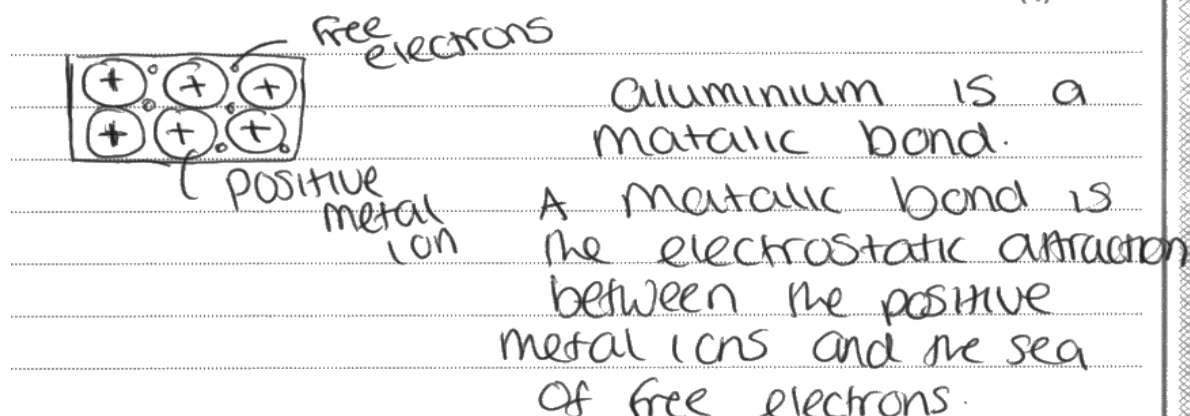 free
electrons
+ + +
+ + +
positive
metal
ion
aluminium is a
matalic bond.
A matalic bond is
the electrostatic attraction
between the positive
metal ions and the sea
of free electrons.